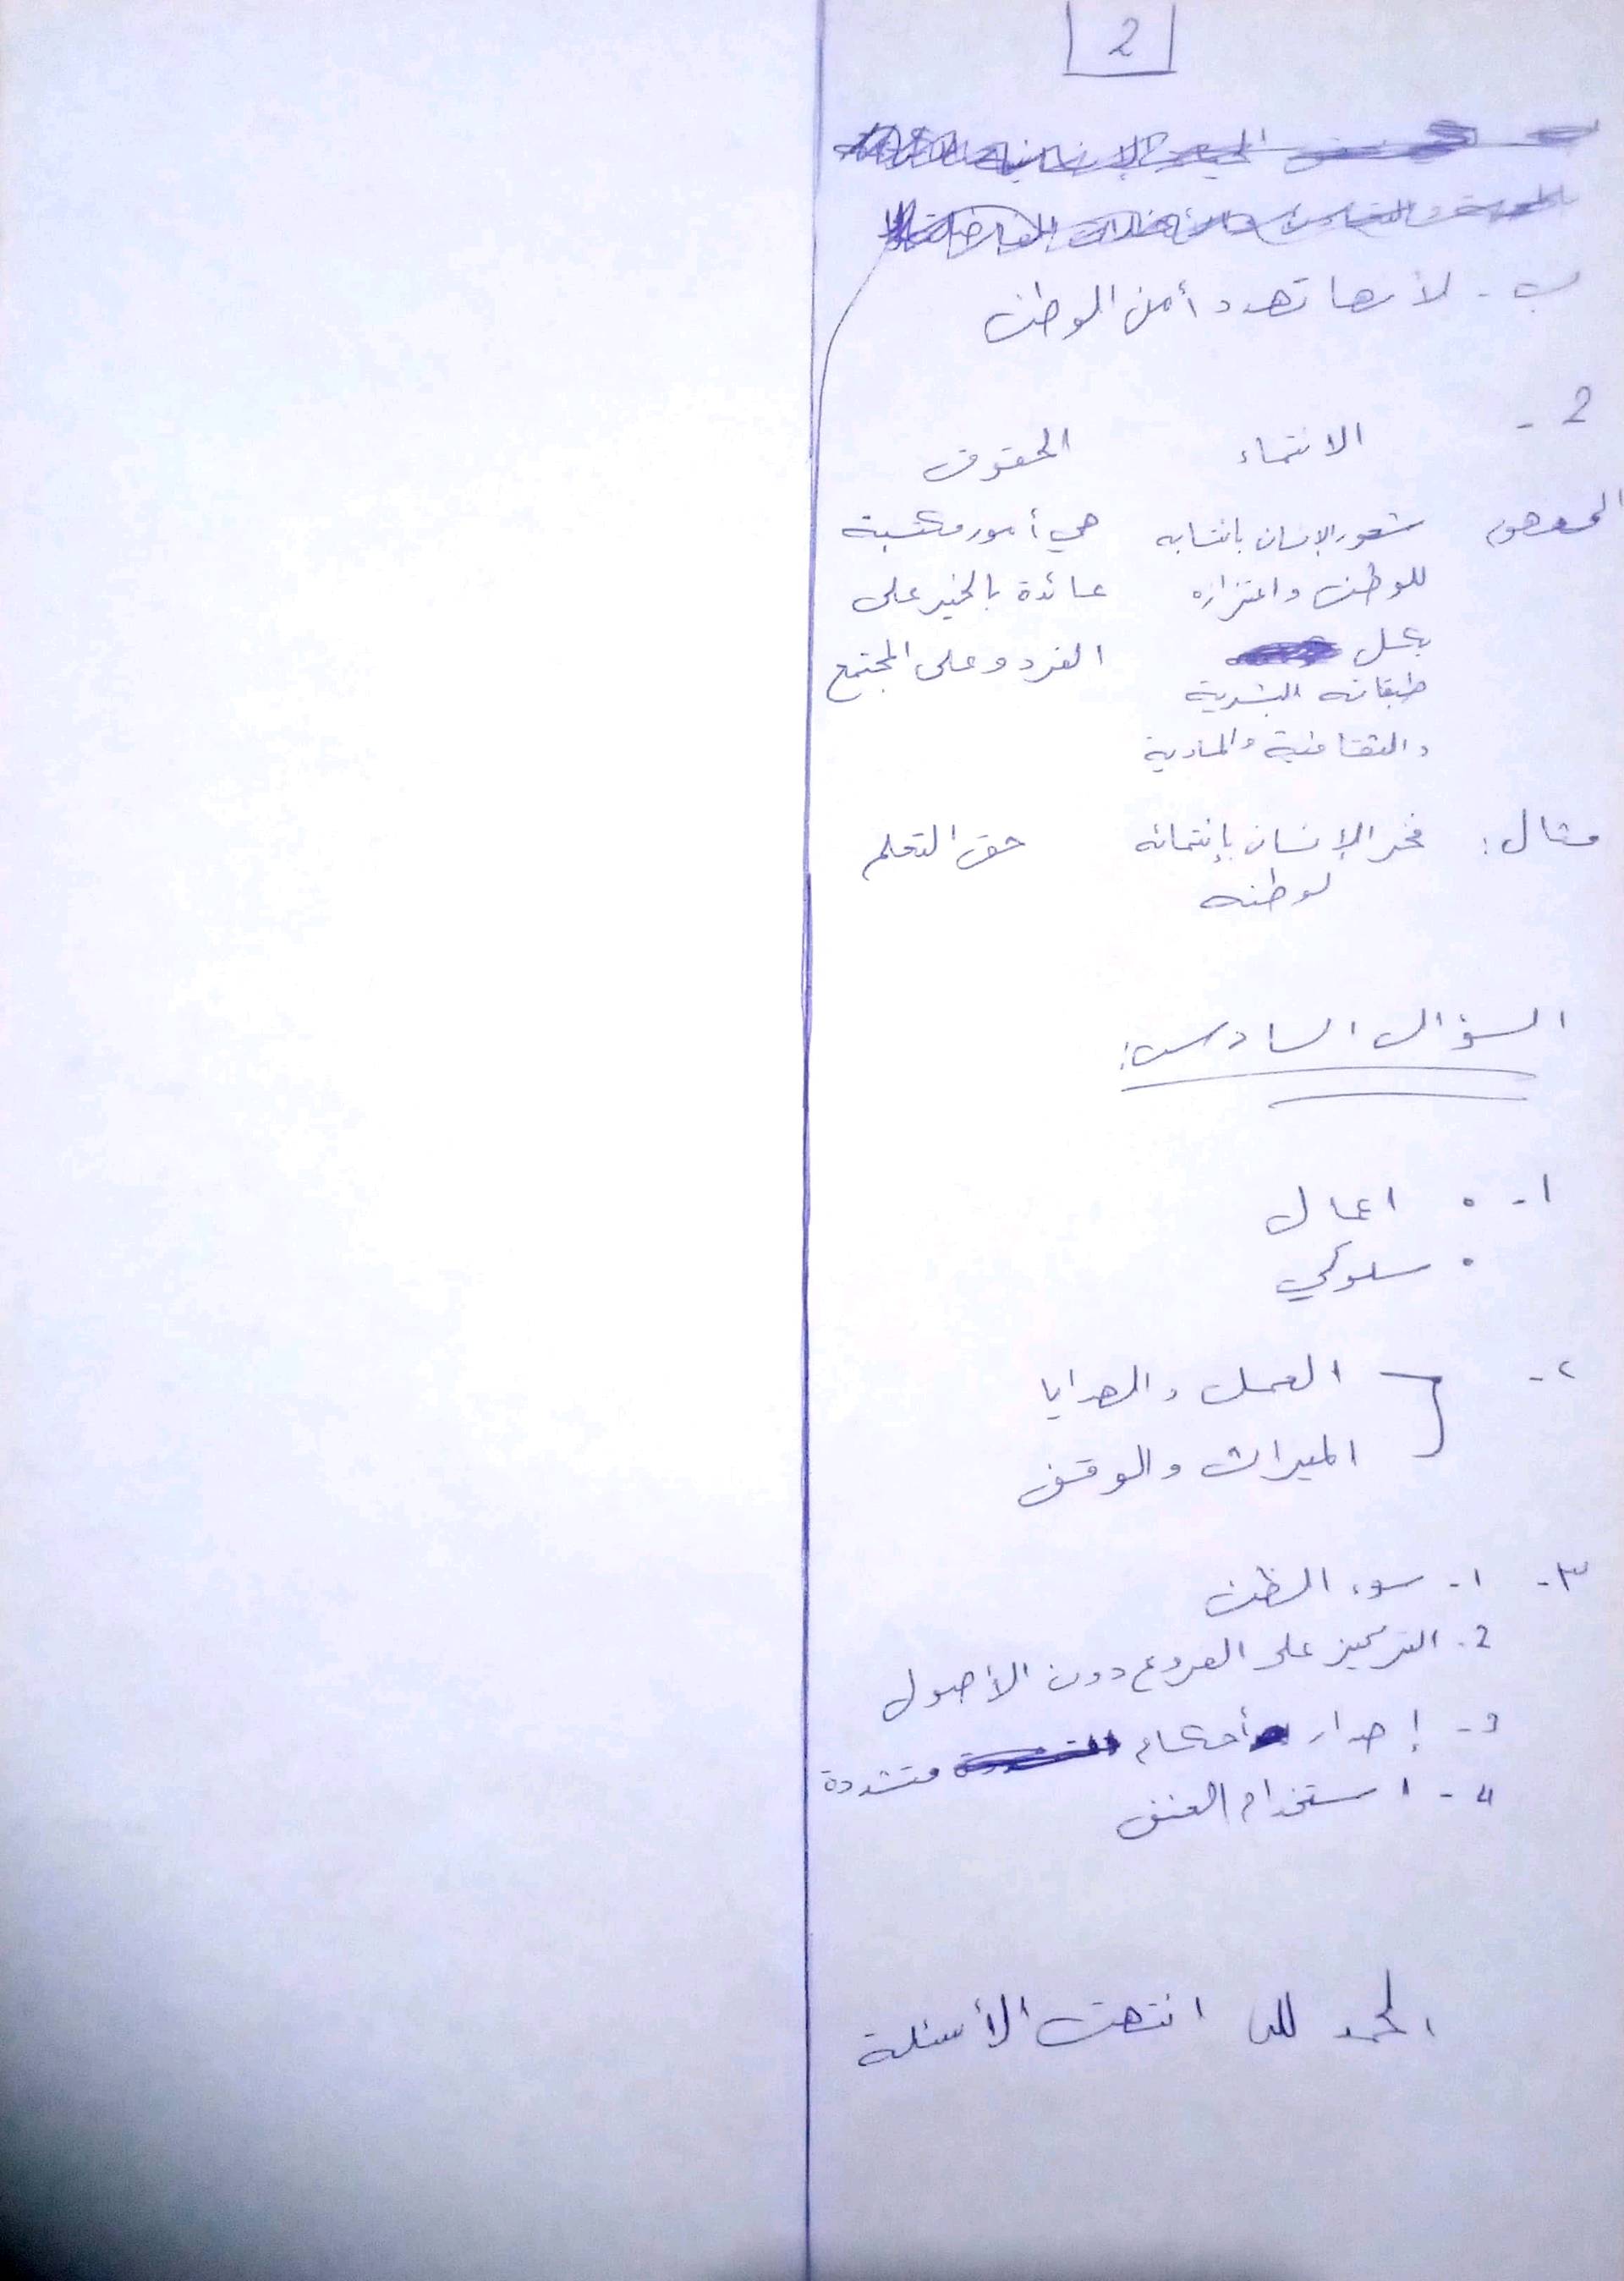 2
ب - لأنها تهدد أمن الوطن
2 -
الانتماء الحقوق
المفهوم شعور الإنسان بانتسابه هي أمور مكتسبة
للوطن واعتزازه عائدة بالخير على
بكل الفرد وعلى المجتمع
طبقاته البشرية
والثقافية والمادية
مثال: فخر الإنسان بإنتمائه حق التعلم
لوطنه
السؤال السادس:
١- • اعمال
• سلوكي
٢- العمل والهدايا
الميراث والوقف
٣- ١- سوء الظن
2- التركيز على الفروع دون الأصول
3- إصدار أحكام متشددة
4- استخدام العنف
الحمد لله انتهت الأسئلة